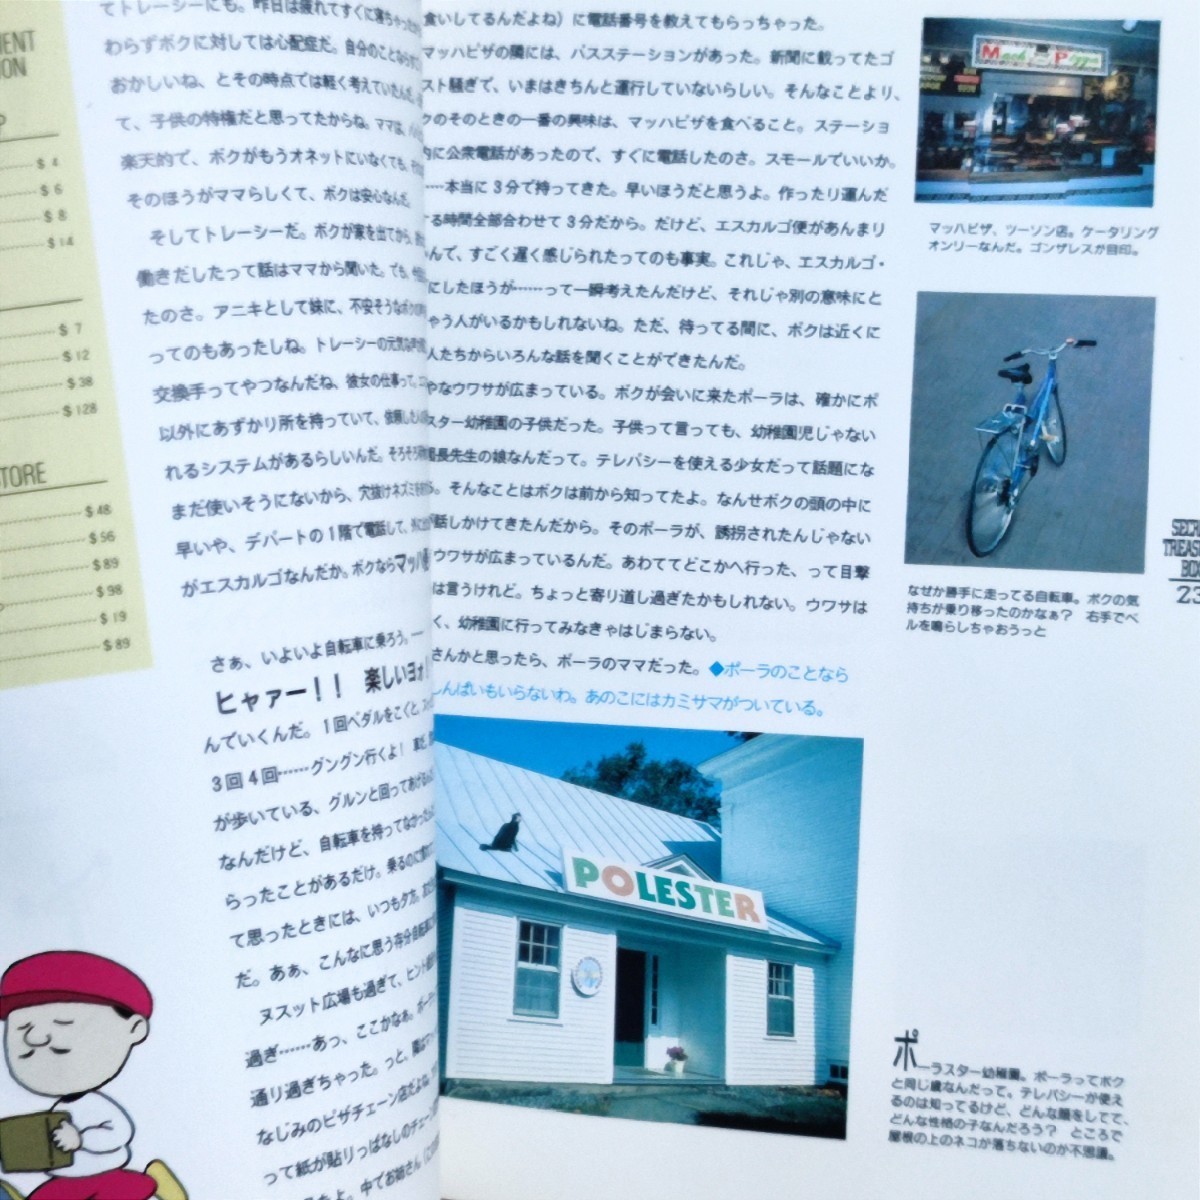 MENT
ION
P
$ 4
$ 6
$ 8
$ 14
$ 7
$ 12
$ 38
$ 128
STORE
$ 48
$ 56
$ 89
$ 98
$ 19
$ 89
てトレーシーにも。昨日は疲れてすぐに落ちゃった
わらずボクに対しては心配症だ。自分のことならすご
おかしいね、とその時点では軽く考えていたんだ。
て、子供の特権だと思ってたからね。ママは、
楽天的で、ボクがもうオネットにいなくても、
そのほうがママらしくて、ボクは安心なんだ。
そしてトレーシーだ。ボクが家を出てから、
働きだしたって話はママから聞いた。でも、
たのさ。アニキとして妹に、不安そうな
ってのもあったしね。トレーシーの元気な
交換手ってやつなんだね、彼女の仕事って。
以外にあずかり所を持っていて、依頼した
れるシステムがあるらしいんだ。そろそろ
まだ使いそうにないから、穴抜けネズミを
早いや、デパートの1階で電話して、
がエスカルゴなんだか。ボクならマッハ
さぁ、いよいよ自転車に乗ろう。
ヒャァー！！　楽しいヨォ！
んでいくんだ。1回ペダルをこぐと、
3回4回……グングン行くよ！
が歩いている、グルンと回ってあげる
なんだけど、自転車を持ってなかった
らったことがあるだけ。乗るのに
て思ったときには、いつも夕方。
だ。あぁ、こんなに思う存分自転車に
ヌスット広場も過ぎて、ヒント
過ぎ……あっ、ここかなぁ。ポーラ
通り過ぎちゃった。っと、隣は
なじみのピザチェーン店だよね。
って紙が貼りっぱなしのチェーン
たよ。中でお姉さん
食いしてるんだよね）に電話番号を教えてもらっちゃった。
マッハピザの隣には、バスステーションがあった。新聞に載ってたゴ
スト騒ぎで、いまはきちんと運行していないらしい。そんなことより、
クのそのときの一番の興味は、マッハピザを食べること。ステーショ
内に公衆電話があったので、すぐに電話したのさ。スモールでいいか。
……本当に3分で持ってきた。早いほうだと思うよ。作ったり運んだ
する時間全部合わせて3分だから。だけど、エスカルゴ便があんまり
んで、すごく遅く感じられたってのも事実。これじゃ、エスカルゴ・
にしたほうが……って一瞬考えたんだけど、それじゃ別の意味にと
ゃう人がいるかもしれないね。ただ、待ってる間に、ボクは近くに
人たちからいろんな話を聞くことができたんだ。
やなウワサが広まっている。ボクが会いに来たポーラは、確かにポ
スター幼稚園の子供だった。子供って言っても、幼稚園児じゃない
園長先生の娘なんだって。テレパシーを使える少女だって話題にな
る。そんなことはボクは前から知ってたよ。なんせボクの頭の中に
話しかけてきたんだから。そのポーラが、誘拐されたんじゃない
ウワサが広まっているんだ。あわててどこかへ行った、って目撃
は言うけれど。ちょっと寄り道し過ぎたかもしれない。ウワサは
く、幼稚園に行ってみなきゃはじまらない。
さんかと思ったら、ポーラのママだった。◆ポーラのことなら
しんぱいもいらないわ。あのこにはカミサマがついている。
POLESTER
Mach Pizza
マッハピザ、ツーソン店。ケータリング
オンリーなんだ。ゴンザレスが目印。
なぜか勝手に走ってる自転車。ボクの気
持ちが乗り移ったのかなぁ？　右手でベ
ルを鳴らしちゃおうっと
SECRE
TREASU
BOX
23
ポーラスター幼稚園。ポーラってボク
と同じ歳なんだって。テレパシーが使え
るのは知ってるけど、どんな顔をしてて、
どんな性格の子なんだろう？　ところで
屋根の上のネコが落ちないのか不思議。